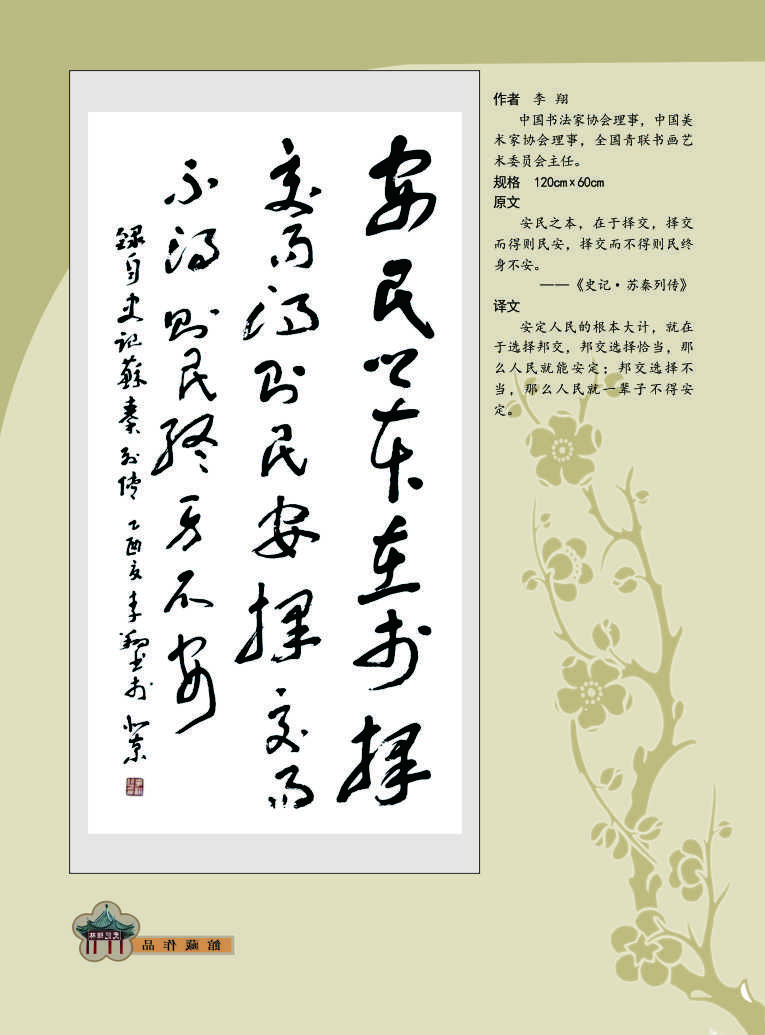 安民之本在於擇
交而得則民安擇交而
不得則民終身不安
錄自史記蘇秦列傳 乙酉夏李翔書於北京
作者 李 翔
中国书法家协会理事，中国美
术家协会理事，全国青联书画艺
术委员会主任。
规格 120cm×60cm
原文
安民之本，在于择交，择交
而得则民安，择交而不得则民终
身不安。
——《史记·苏秦列传》
译文
安定人民的根本大计，就在
于选择邦交，邦交选择恰当，那
么人民就能安定；邦交选择不
当，那么人民就一辈子不得安
定。
館藏作品